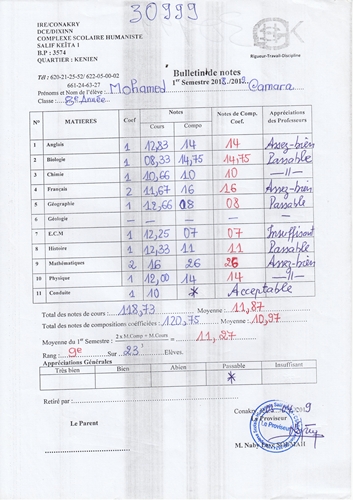 30999
IRE/CONAKRY
DCE/DIXINN
COMPLEXE SCOLAIRE HUMANISTE
SALIF KEÏTA 1
B.P : 3574
QUARTIER : KENIEN
Rigueur-Travail-Discipline
Tél : 620-21-25-52/ 622-05-00-02
661-24-63-27
Bulletin de notes
1er Semestre 2018../2019..
Prénoms et Nom de l'élève : Mohamed Camara
Classe : 8e Année
N° MATIERES Coef Notes Notes de Comp. Coef. Appréciations des Professeurs
Cours Compo
1 Anglais 1 12,83 14 14 Assez-bien
2 Biologie 1 08,33 14,75 14,75 Passable
3 Chimie 1 10,66 10 10 —//—
4 Français 2 11,67 16 16 Assez-bien
5 Géographie 1 12,66 08 08 Passable
6 Géologie — — — — —
7 E.C.M 1 12,25 07 07 Insuffisant
8 Histoire 1 12,33 11 11 Passable
9 Mathématiques 2 16 26 26 Assez-bien
10 Physique 1 12,00 14 14 —//—
11 Conduite 1 10 * Acceptable
Total des notes de cours : 118,73 Moyenne : 11,87
Total des notes de compositions coefficiées : 120,75 Moyenne : 10,97
Moyenne du 1er Semestre : 2 x M.Comp + M.Cours = 11,27
3
Rang : 9e Sur 23 Elèves.
Appréciations Générales
Très bien Bien Abien Passable Insuffisant
*
Retiré par :
Conakry 2019
Le Parent
Le Proviseur
M. Naby